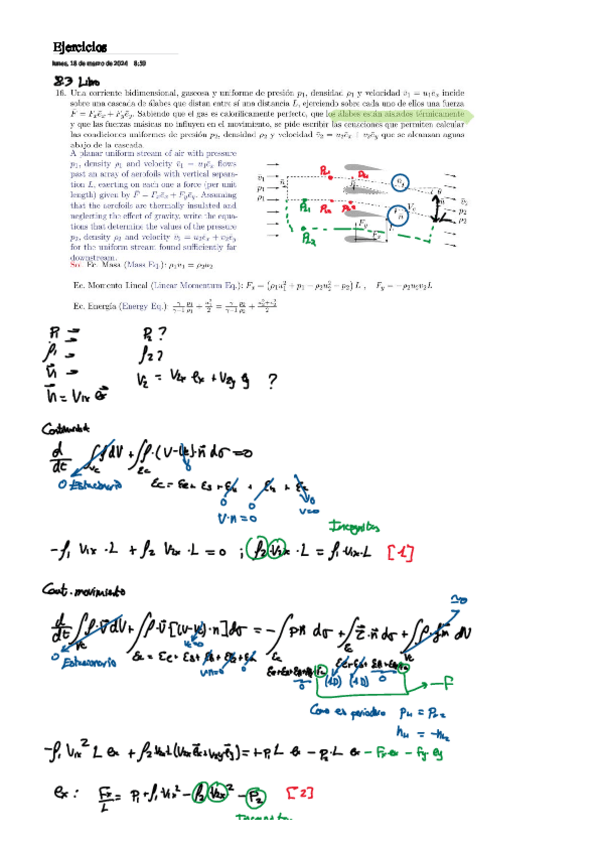 Ejercicios
lunes, 18 de marzo de 2024 8:59
8.3 Libro
16. Una corriente bidimensional, gaseosa y uniforme de presión p₁, densidad ρ₁ y velocidad v̄₁ = u₁ēₓ incide
sobre una cascada de álabes que distan entre sí una distancia L, ejerciendo sobre cada uno de ellos una fuerza
F̄ = Fₓēₓ + F_yē_y. Sabiendo que el gas es caloríficamente perfecto, que los álabes están aislados térmicamente
y que las fuerzas másicas no influyen en el movimiento, se pide escribir las ecuaciones que permiten calcular
las condiciones uniformes de presión p₂, densidad ρ₂ y velocidad v̄₂ = u₂ēₓ + v₂ē_y que se alcanzan aguas
abajo de la cascada.
A planar uniform stream of air with pressure
p₁, density ρ₁ and velocity v̄₁ = u₁ēₓ flows
past an array of aerofoils with vertical separa-
tion L, exerting on each one a force (per unit
length) given by F̄ = Fₓēₓ + F_yē_y. Assuming
that the aerofoils are thermally insulated and
neglecting the effect of gravity, write the equa-
tions that determine the values of the pressure
p₂, density ρ₂ and velocity v̄₂ = u₂ēₓ + v₂ē_y
for the uniform stream found sufficiently far
downstream.
Ec. Masa (Mass Eq.): ρ₁u₁ = ρ₂u₂
Ec. Momento Lineal (Linear Momentum Eq.): Fₓ = (ρ₁u₁² + p₁ − ρ₂u₂² − p₂) L , F_y = −ρ₂u₂v₂L
Ec. Energía (Energy Eq.): γ/(γ−1) p₁/ρ₁ + u₁²/2 = γ/(γ−1) p₂/ρ₂ + (u₂²+v₂²)/2
P₂ ?
ρ₁ = ρ₂ ?
V₂ = V₂ₓ eₓ + V₂y ?
= V₁ₓ
Continuidad
d/dt ∫ρdV + ∫ρ·(V-Vc)·n dσ = 0
0 Estacionario
V·n = 0 V=0
Incognitas
-ρ₁ V₁ₓ·L + ρ₂ V₂ₓ·L = 0 ; ρ₂ V₂ₓ·L = ρ₁ V₁ₓ·L [1]
Cant. movimiento
d/dt ∫ρ·v dV + ∫ρ·v [(v-vc)·n] dσ = -∫pn dσ + ∫τ·n dσ + ∫ρ·fm dV
0 Estacionario
-F
Como es periodico
-ρ₁ V₁ₓ² L eₓ + ρ₂ V₂ₓ L (V₂ₓ eₓ + V₂y e_y) = +P₁ L eₓ - P₂·L eₓ - Fₓ eₓ - F_y e_y
eₓ: Fₓ/L = P₁ + ρ₁ V₁ₓ² - ρ₂ V₂ₓ² - P₂ [2]
Incognitas